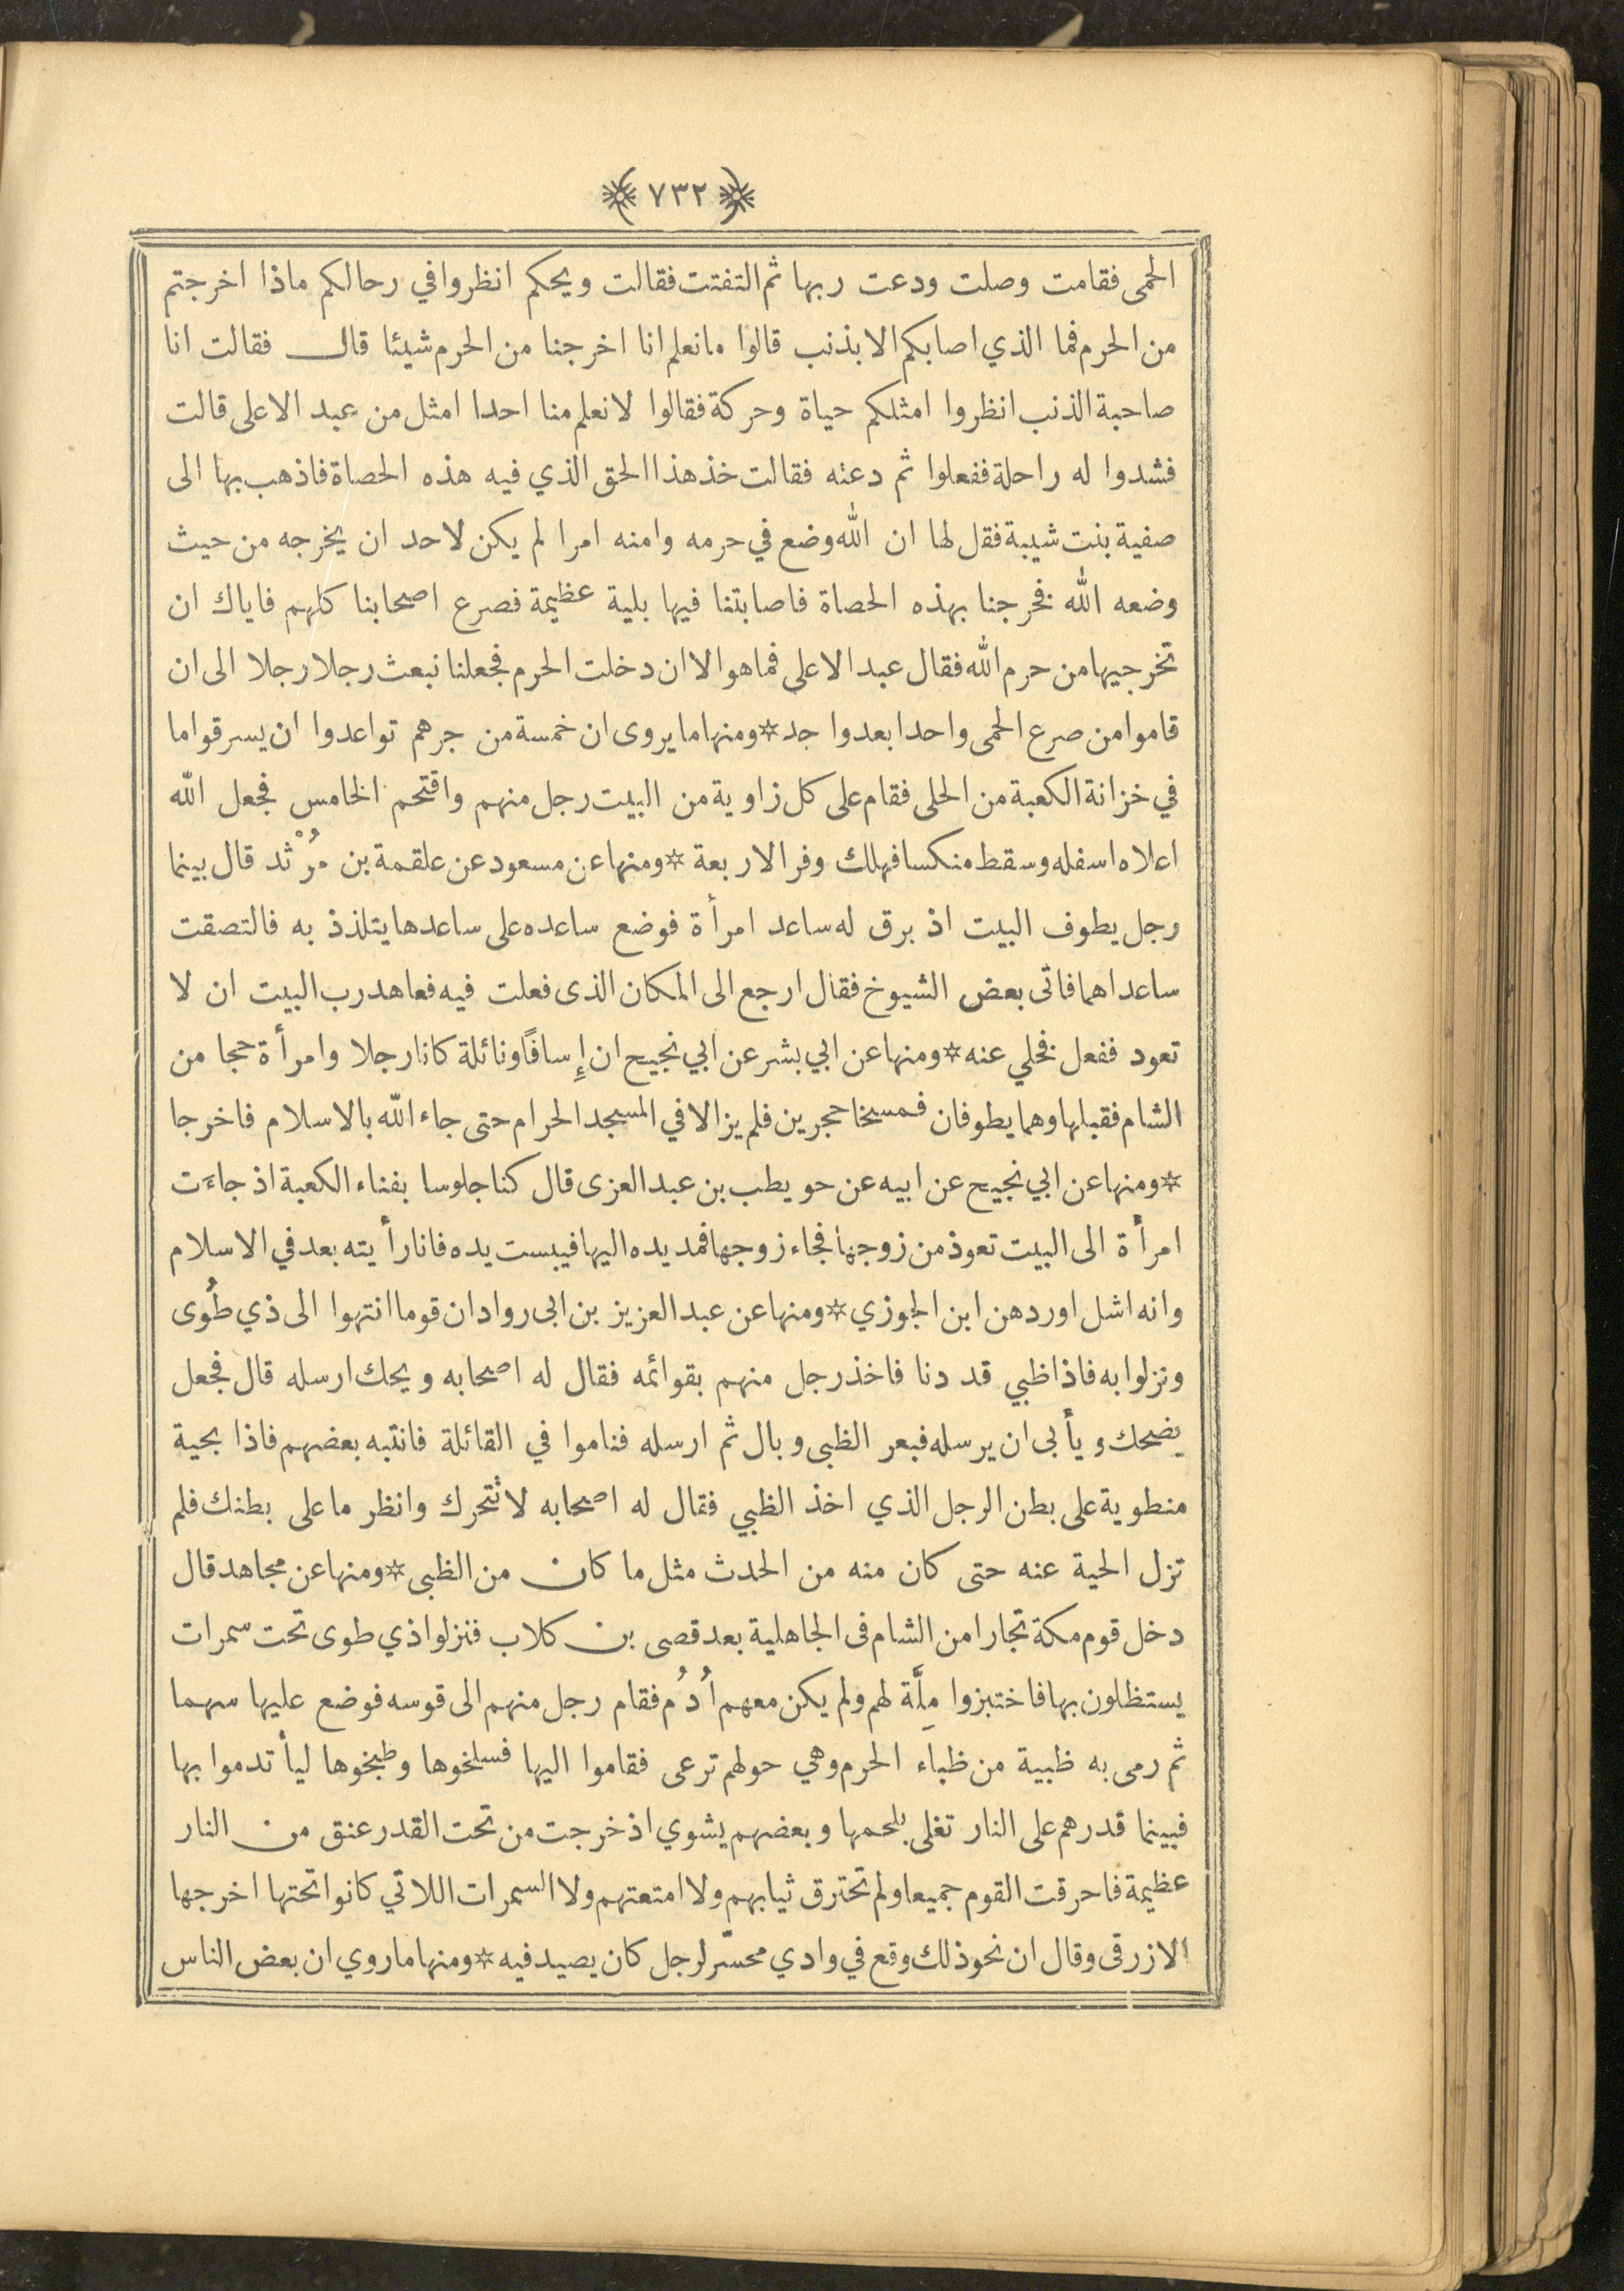 ٧٣٢
الحمى فقامت وصلت ودعت ربها ثم التفتت فقالت ويحكم انظروا في رحالكم ماذا اخرجتم
من الحرم فما الذي اصابكم الا بذنب قالوا ما نعلم انا اخرجنا من الحرم شيئا قال فقالت انا
صاحبة الذنب انظروا امثلكم حياة وحركة فقالوا لا نعلم منا احدا امثل من عبد الاعلى قالت
فشدوا له راحلة ففعلوا ثم دعته فقالت خذ هذا الحق الذي فيه هذه الحصاة فاذهب بها الى
صفية بنت شيبة فقل لها ان الله وضع في حرمه وامنه امرا لم يكن لاحد ان يخرجه من حيث
وضعه الله فخرجنا بهذه الحصاة فاصابتنا فيها بلية عظيمة فصرع اصحابنا كلهم فاياك ان
تخرجيها من حرم الله فقال عبد الاعلى فما هو الا ان دخلت الحرم فجعلنا نبعث رجلا رجلا الى ان
قاموا من صرع الحمى واحدا بعدوا جد * ومنها ما يروى ان خمسة من جرهم تواعدوا ان يسرقوا ما
في خزانة الكعبة من الحلى فقام على كل زاوية من البيت رجل منهم واقتحم الخامس فجعل الله
اعلاه اسفله وسقط منكسا فهلك وفر الاربعة * ومنها عن مسعود عن علقمة بن مُرْثد قال بينما
رجل يطوف البيت اذ برق له ساعد امرأة فوضع ساعده على ساعدها يتلذذ به فالتصقت
ساعداهما فاتى بعض الشيوخ فقال ارجع الى المكان الذى فعلت فيه فعاهد رب البيت ان لا
تعود ففعل فخلي عنه * ومنها عن ابي بشر عن ابي نجيح ان إِسافاً ونائلة كانا رجلا وامرأة حجا من
الشام فقبلها وهما يطوفان فمسخا حجرين فلم يزالا في المسجد الحرام حتى جاء الله بالاسلام فاخرجا
* ومنها عن ابي نجيح عن ابيه عن حويطب بن عبد العزى قال كنا جلوسا بفناء الكعبة اذ جاءت
امرأة الى البيت تعوذ من زوجها فجاء زوجها فمد يده اليها فيبست يده فانا رأيته بعد في الاسلام
وانه اشل اوردهن ابن الجوزي * ومنها عن عبد العزيز بن ابى رواد ان قوما انتهوا الى ذي طُوى
ونزلوا به فاذا ظبي قد دنا فاخذ رجل منهم بقوائمه فقال له اصحابه ويحك ارسله قال فجعل
يضحك ويأبى ان يرسله فبعر الظبى وبال ثم ارسله فناموا في القائلة فانتبه بعضهم فاذا بحية
منطوية على بطن الرجل الذي اخذ الظبي فقال له اصحابه لا تتحرك وانظر ما على بطنك فلم
تزل الحية عنه حتى كان منه من الحدث مثل ما كان من الظبى * ومنها عن مجاهد قال
دخل قوم مكة تجارا من الشام فى الجاهلية بعد قصى بن كلاب فنزلوا ذي طوى تحت سمرات
يستظلون بها فاختبزوا مِلَّة لهم ولم يكن معهم أُدُم فقام رجل منهم الى قوسه فوضع عليها سهما
ثم رمى به ظبية من ظباء الحرم وهي حولهم ترعى فقاموا اليها فسلخوها وطبخوها ليأتدموا بها
فبينما قدرهم على النار تغلى بلحمها وبعضهم يشوي اذ خرجت من تحت القدر عنق من النار
عظيمة فاحرقت القوم جميعا ولم تحترق ثيابهم ولا امتعتهم ولا السمرات اللاتي كانوا تحتها اخرجها
الازرقى وقال ان نحو ذلك وقع في وادي محسّر لرجل كان يصيد فيه * ومنها ما روي ان بعض الناس